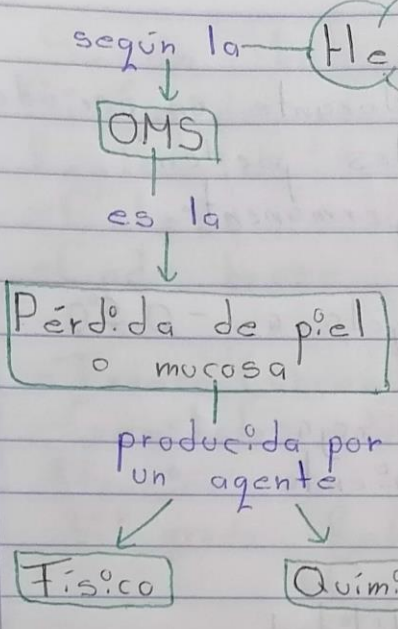 según la
He
OMS
es la
Pérdida de piel
o mucosa
producida por
un agente
Físico
Quími